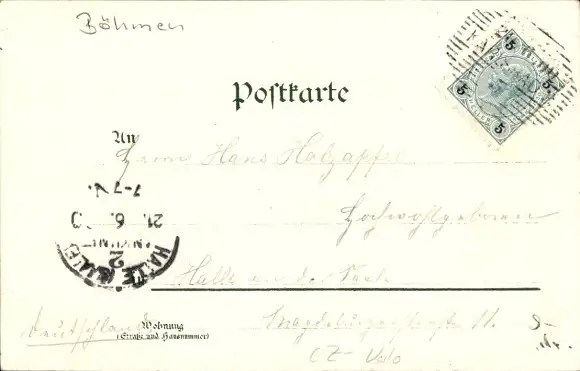 Böhmen
5 5 5 5
Postkarte
An
Herrn Hans Holzapfel
Hochwohlgeboren
Halle an der Saale
Deutschland
Wohnung
(Straße und Hausnummer)
Magdeburgerstraße 11.
CZ-Velo
7-7 V.
21. 6.
HALLE (SAALE)
2